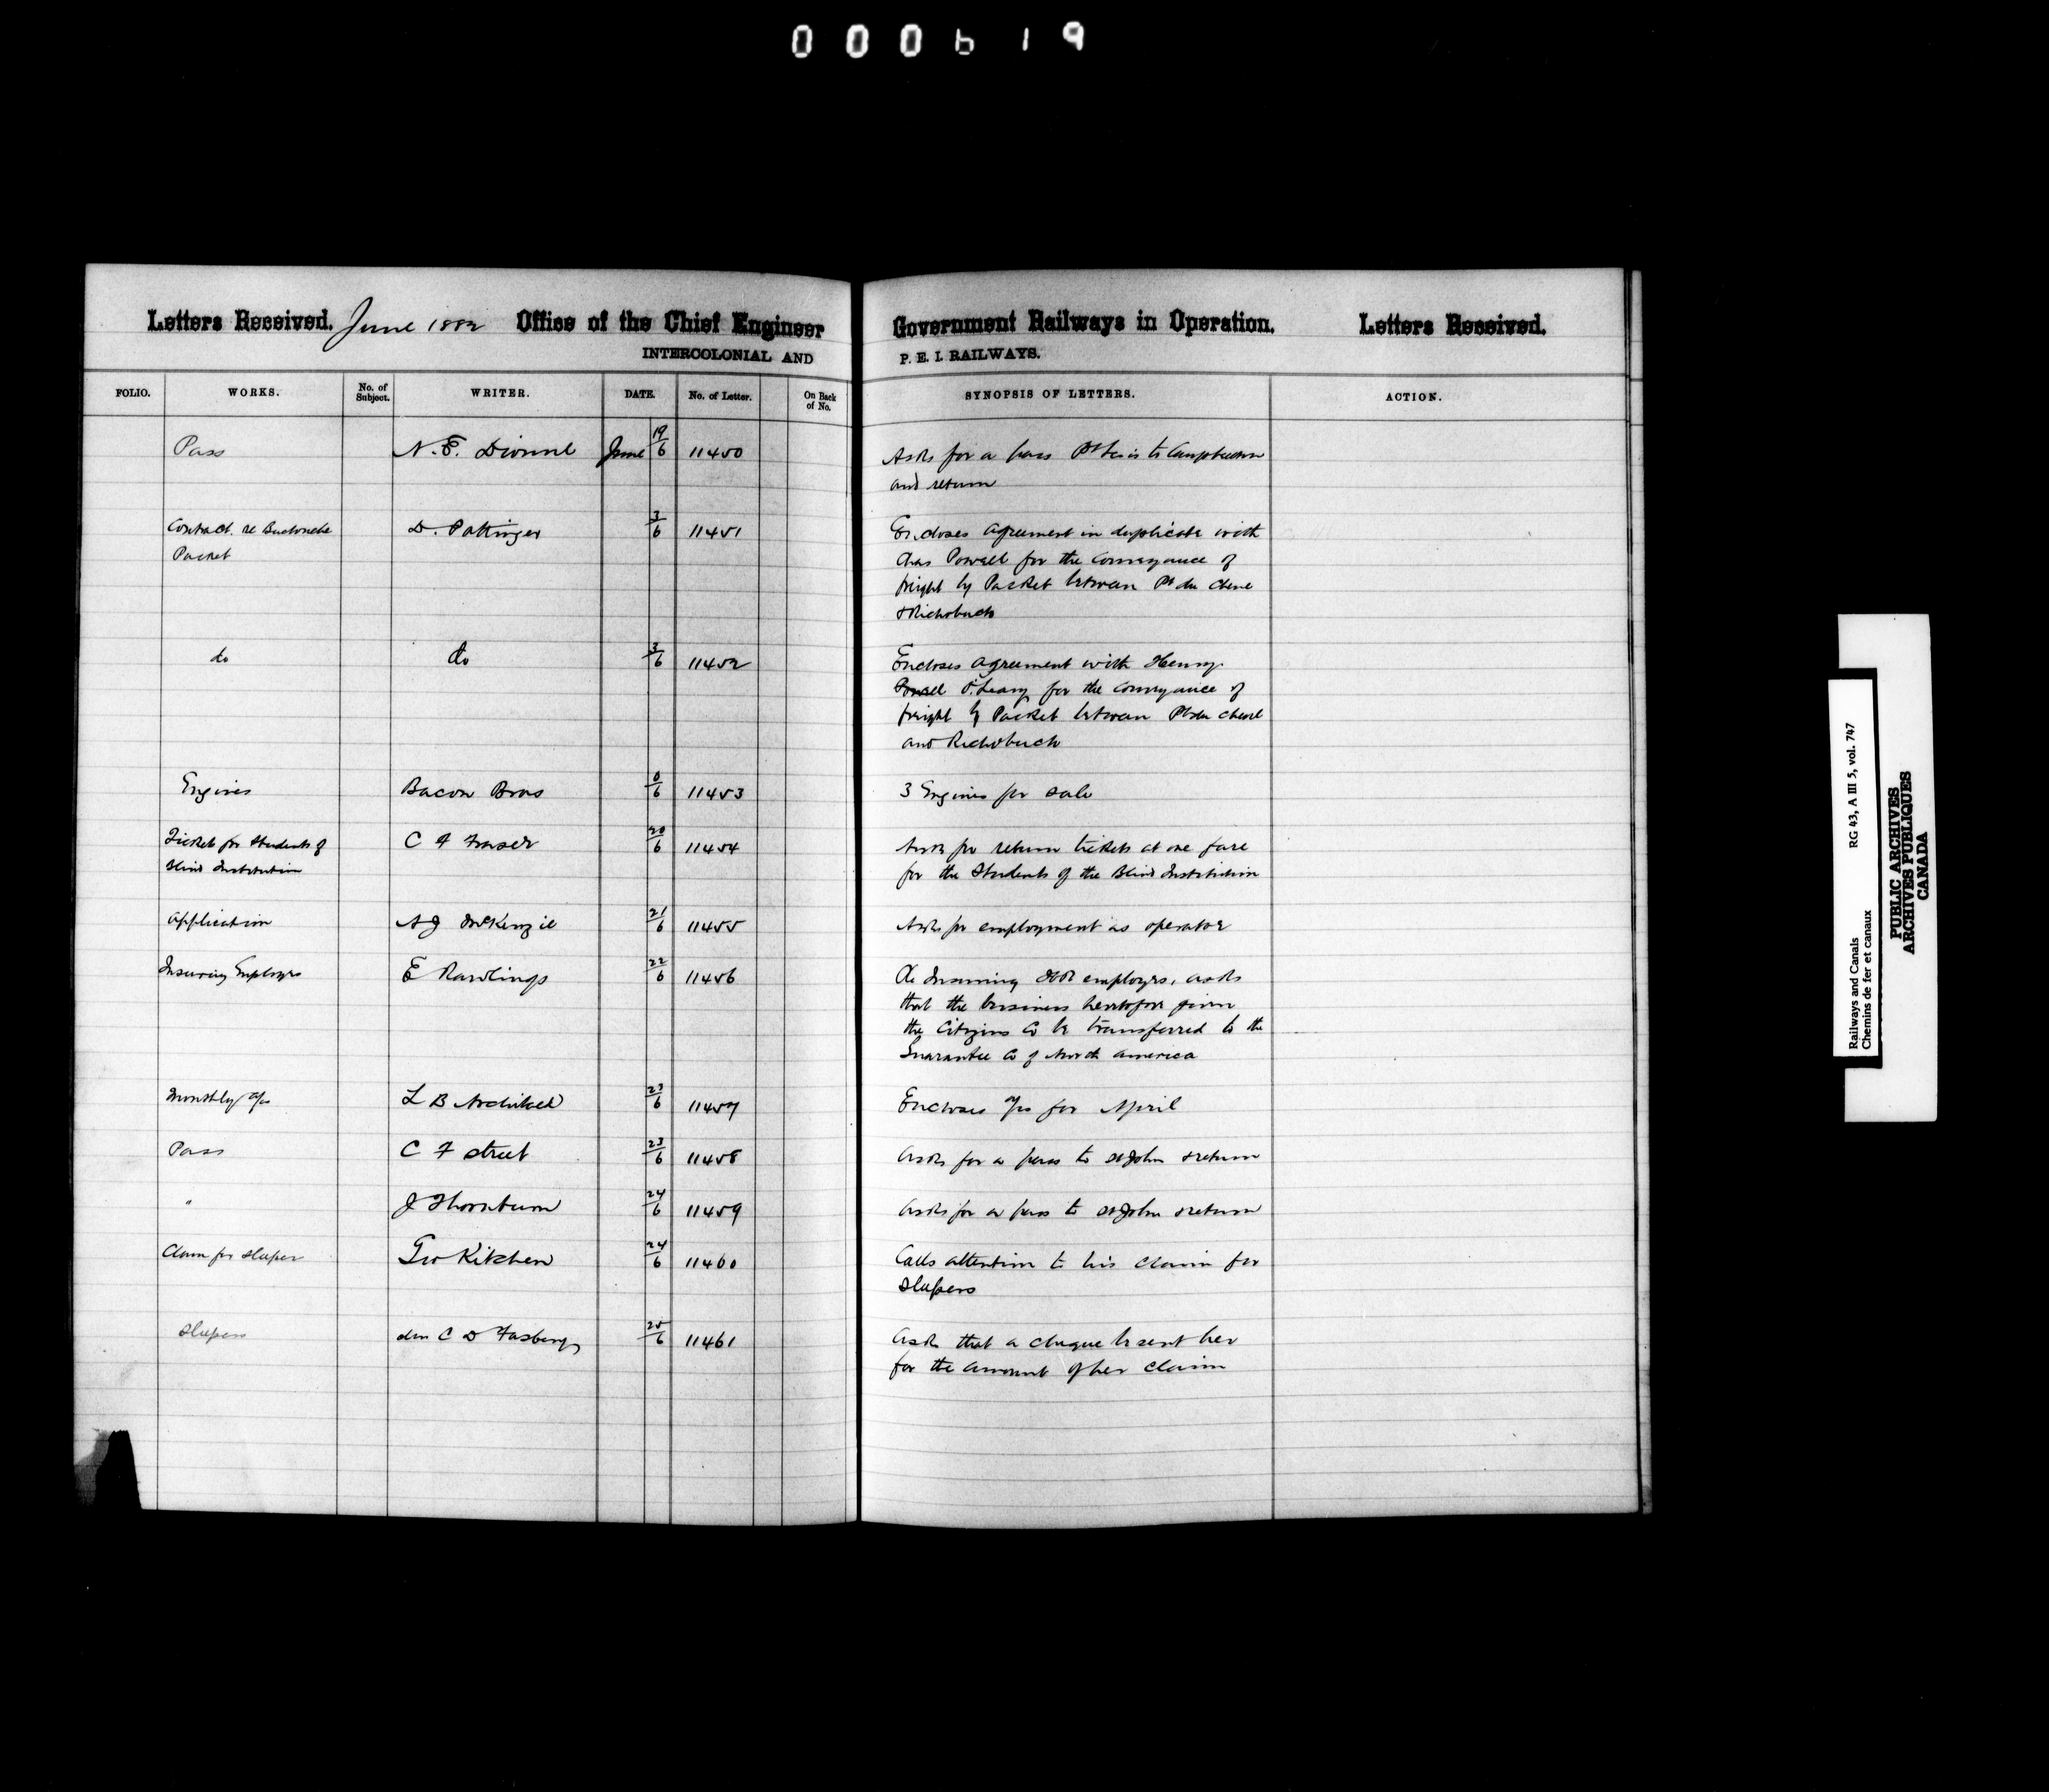 000619
Letters Received. June 1882 Office of the Chief Engineer Government Railways in Operation. Letters Received.
INTERCOLONIAL AND P. E. I. RAILWAYS.
FOLIO. WORKS. No. of Subject. WRITER. DATE. No. of Letter. On Back of No. SYNOPSIS OF LETTERS. ACTION.
Pass N. E. Dionne June 19/6 11450 Asks for a pass Pt Levis to Campbellton
and return
Contract re Buctouche D. Pottinger 3/6 11451 Encloses agreement in duplicate with
Packet Chas Powell for the conveyance of
freight by Packet between Pt du Chene
& Richibucto
do do 3/6 11452 Encloses agreement with Henry
Powell O'Leary for the conveyance of
freight by Packet between Pt du Chene
and Richibucto
Engines Bacon Bros 0/6 11453 3 Engines for sale
Tickets for Students of C F Fraser 20/6 11454 Asks for return tickets at one fare
Blind Institution for the Students of the Blind Institution
Application A J McKenzie 21/6 11455 Asks for employment as operator
Insuring Employes E Rawlings 22/6 11456 Re Insuring ICR employes, asks
that the business heretofore given
the Citizens Co be transferred to the
Guarantee Co of North America
Monthly a/cs L B Archibald 23/6 11457 Encloses a/cs for April
Pass C F Street 23/6 11458 Asks for a pass to St John & return
" J Thornburn 24/6 11459 Asks for a pass to St John & return
Claim for sleeper Geo Kitchen 24/6 11460 Calls attention to his claim for
sleepers
Sleepers C D 25/6 11461 Asks that a cheque be sent her
for the amount of her claim
Railways and Canals RG 43, A III 5, vol. 747
Chemins de fer et canaux
PUBLIC ARCHIVES
ARCHIVES PUBLIQUES
CANADA